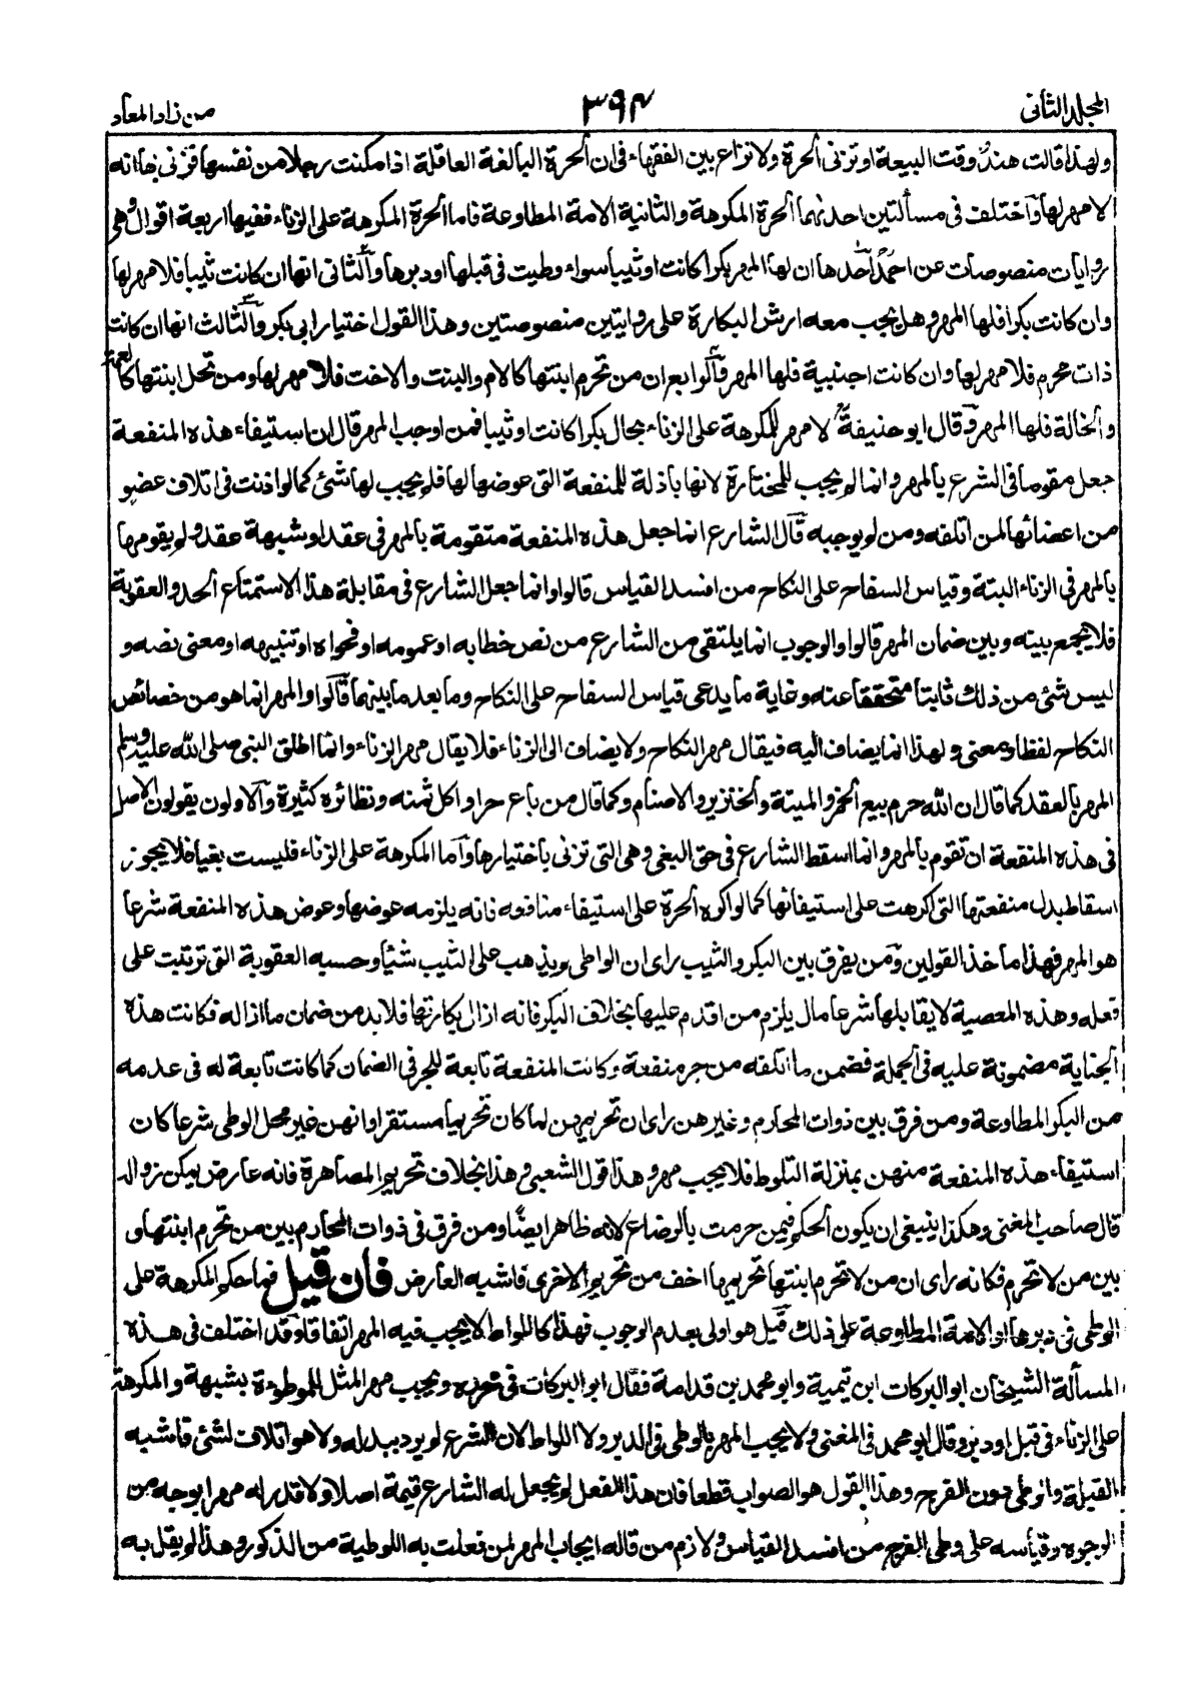 المجلد الثاني
٣٩٤
من زاد المعاد
ولهذا قالت هند وقت البيعة او تزنى الحرة ولا نزاع بين الفقهاء فى ان الحرة البالغة العاقلة اذا مكنت رجلا من نفسها فزنى بها انه
لا مهر لها واختلف فى مسألتين احدنهما الحرة المكرهة والثانية الامة المطاوعة فاما الحرة المكرهة على الزناء ففيها اربعة اقوال وهى
روايات منصوصات عن احمد احدها ان لها المهر بكرا كانت او ثيبا سواء وطيت فى قبلها او دبرها والثانى انها ان كانت ثيبا فلا مهر لها
وان كانت بكرا فلها المهر وهل يجب معه ارش البكارة على روايتين منصوصتين وهذا القول اختيار ابى بكر والثالث انها ان كانت
ذات محرم فلا مهر لها وان كانت اجنبية فلها المهر والرابع ان من تحرم ابنتها كالام والبنت والاخت فلا مهر لها ومن تحل ابنتها كالعمة
والخالة فلها المهر وقال ابو حنيفة لا مهر للمكرهة على الزناء بحال بكرا كانت او ثيبا فمن اوجب المهر قال ان استيفاء هذه المنفعة
جعل مقوما فى الشرع بالمهر وانما لم يجب للمختارة لانها باذلة للمنفعة التى عوضها لها فلم يجب لها شئ كما لو اذنت فى اتلاف عضو
من اعضائها لمن اتلفه ومن لم يوجبه قال الشارع انما جعل هذه المنفعة متقومة بالمهر فى عقد او شبهة عقد ولم يقومها
بالمهر فى الزناء البتة وقياس السفاح على النكاح من افسد القياس قالوا وانما جعل الشارع فى مقابلة هذا الاستمتاع الحد والعقوبة
فلا يجمع بينه وبين ضمان المهر قالوا والوجوب انما يلتقى من الشارع من نص خطابه او عمومه او فحواه او تنبيهه او معنى نصه و
ليس شئ من ذلك ثابتا متحققا عنه وغاية ما يدعى قياس السفاح على النكاح وما بعد ما بينهما قالوا والمهر انما هو من خصائص
النكاح لفظا ومعنى ولهذا انما يضاف اليه فيقال مهر النكاح ولا يضاف الى الزناء فلا يقال مهر الزناء وانما اطلق النبى صلى الله عليه وسلم
المهر بالعقد كما قال ان الله حرم بيع الخمر والميتة والخنزير والاصنام وكما قال من باع حرا واكل ثمنه ونظائره كثيرة والاولون يقولون الاصل
فى هذه المنفعة ان تقوم بالمهر وانما اسقط الشارع فى حق البغى وهى التى تزنى باختيارها واما المكرهة على الزناء فليست بغيا فلا يجوز
اسقاط بدل منفعتها التى اكرهت على استيفائها كما لو اكره الحرة على استيفاء منافعه فانه يلزمه عوضها وعوض هذه المنفعة شرعا
هو المهر فهذا ماخذ القولين ومن يفرق بين البكر والثيب راى ان الواطى لم يذهب على الثيب شيئا وحسبه العقوبة التى ترتبت على
فعله وهذه المعصية لا يقابلها شرعا مال يلزم من اقدم عليها بخلاف البكر فانه ازال بكارتها فلا بد من ضمان ما ازاله فكانت هذه
الجناية مضمونة عليه فى الجملة فضمن ما اتلفه من جزء منفعة وكانت المنفعة تابعة للجزء فى الضمان كما كانت تابعة له فى عدمه
من البكر المطاوعة ومن فرق بين ذوات المحارم وغيرهن راى ان تحريمهن لما كان تحريما مستقرا وانهن غير محل الوطى شرعا كان
استيفاء هذه المنفعة منهن بمنزلة التلوط فلا يجب مهر وهذا قول الشعبى وهذا بخلاف تحريم المصاهرة فانه عارض يمكن زواله
قال صاحب المغنى وهكذا ينبغى ان يكون الحكم فيمن حرمت بالرضاع لانه ظاهر ايضا ومن فرق فى ذوات المحارم بين من تحرم ابنتها و
بين من لا تحرم فكانه راى ان من لا تحرم ابنتها تحريمها اخف من تحريم الاخرى فاشبه العارض فان قيل فما حكم المكرهة على
الوطى فى دبرها او الامة المطاوعة على ذلك قيل هو اولى بعدم الوجوب فهذا كاللواط لا يجب فيه المهر اتفاقا وقد اختلف فى هذه
المسألة الشيخان ابو البركات ابن تيمية وابو محمد بن قدامة فقال ابو البركات فى محرره ويجب مهر المثل للموطوءة بشبهة والمكرهة
على الزناء فى قبل او دبر وقال ابو محمد فى المغنى ولا يجب المهر بالوطى فى الدبر ولا اللواط لان الشرع لم يرد ببدله ولا هو اتلاف لشئ فاشبه
القبلة والوطى دون الفرج وهذا القول هو الصواب قطعا فان هذا الفعل لم يجعل له الشارع قيمة اصلا ولا قدر له مهرا بوجه من
الوجوه وقياسه على وطى الفرج من افسد القياس ولازم من قاله ايجاب المهر لمن فعلت به اللوطية من الذكور وهذا لم يقل به